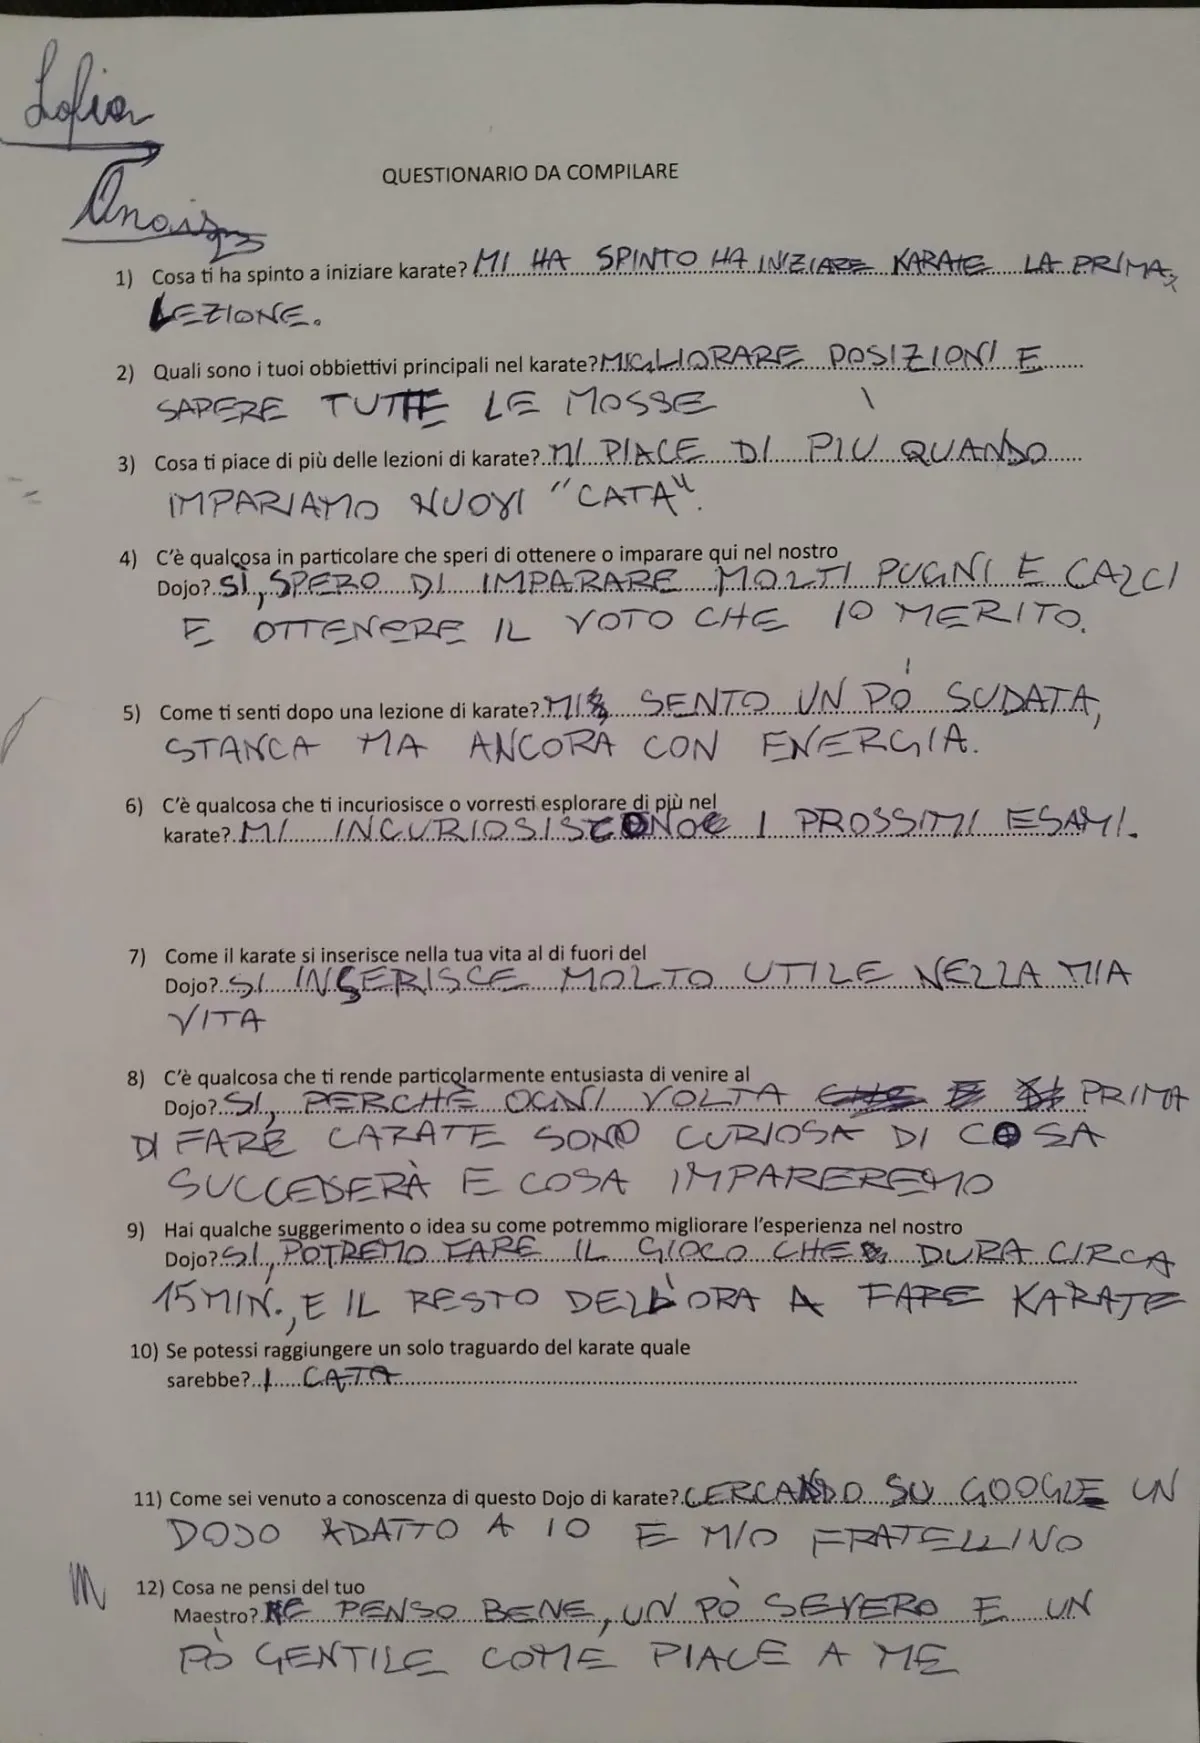 Sofia
Anais
QUESTIONARIO DA COMPILARE
1) Cosa ti ha spinto a iniziare karate? MI HA SPINTO HA INIZIARE KARATE LA PRIMA
LEZIONE.
2) Quali sono i tuoi obbiettivi principali nel karate? MIGLIORARE POSIZIONI E
SAPERE TUTTE LE MOSSE
3) Cosa ti piace di più delle lezioni di karate? MI PIACE DI PIÙ QUANDO
IMPARIAMO NUOVI "CATA".
4) C'è qualcosa in particolare che speri di ottenere o imparare qui nel nostro
Dojo? SÌ, SPERO DI IMPARARE MOLTI PUGNI E CALCI
E OTTENERE IL VOTO CHE IO MERITO.
5) Come ti senti dopo una lezione di karate? MI SENTO UN PÒ SUDATA,
STANCA MA ANCORA CON ENERGIA.
6) C'è qualcosa che ti incuriosisce o vorresti esplorare di più nel
karate? MI INCURIOSISCONO I PROSSIMI ESAMI.
7) Come il karate si inserisce nella tua vita al di fuori del
Dojo? SI INSERISCE MOLTO UTILE NELLA MIA
VITA
8) C'è qualcosa che ti rende particolarmente entusiasta di venire al
Dojo? SI, PERCHÈ OGNI VOLTA PRIMA
DI FARE CARATE SONO CURIOSA DI COSA
SUCCEDERÀ E COSA IMPAREREMO
9) Hai qualche suggerimento o idea su come potremmo migliorare l'esperienza nel nostro
Dojo? SI, POTREMO FARE IL GIOCO CHE DURA CIRCA
15 MIN., E IL RESTO DELL'ORA A FARE KARATE
10) Se potessi raggiungere un solo traguardo del karate quale
sarebbe? I CATA
11) Come sei venuto a conoscenza di questo Dojo di karate? CERCANDO SU GOOGLE UN
DOJO ADATTO A IO E MIO FRATELLINO
12) Cosa ne pensi del tuo
Maestro? NE PENSO BENE, UN PÒ SEVERO E UN
PÒ GENTILE COME PIACE A ME